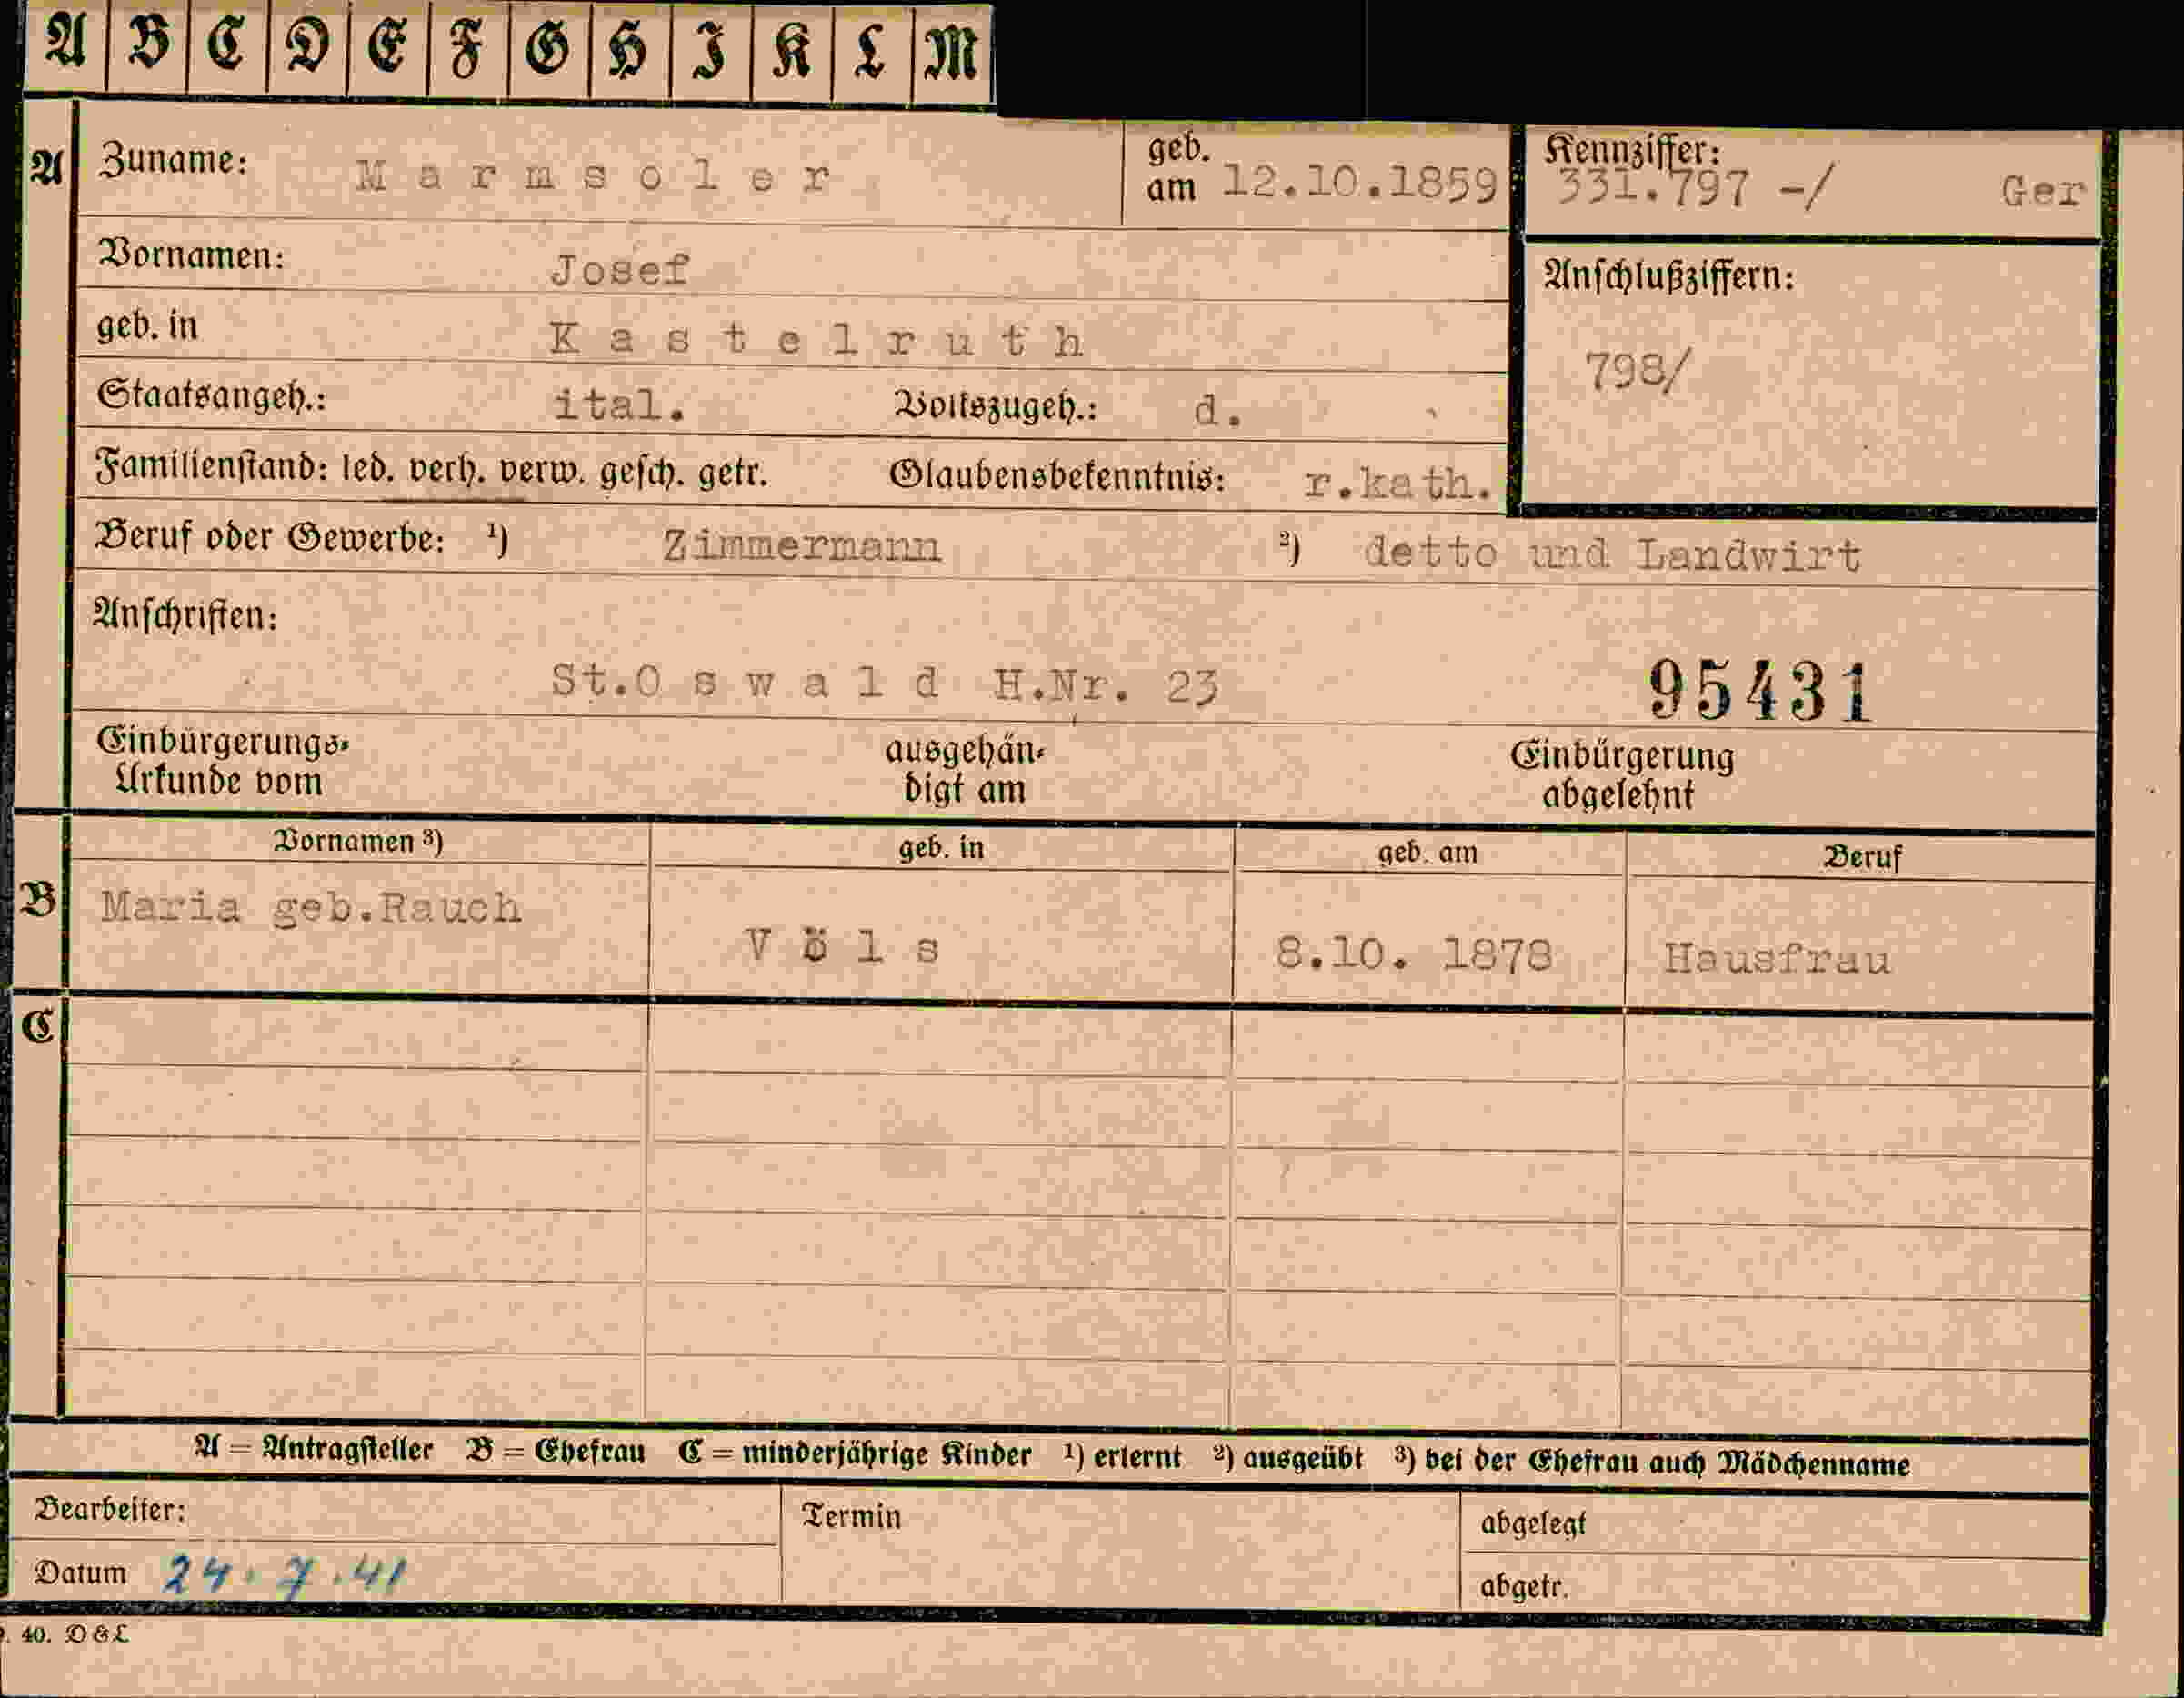 A B C D E F G H I K L M
A Zuname: Marmsoler geb. am 12.10.1859 Kennziffer: 331.797 -/ Ger
Vornamen: Josef Anschlußziffern:
geb. in Kastelruth 798/
Staatsangeh.: ital. Volkszugeh.: d.
Familienstand: led. verh. verw. gesch. getr. Glaubensbekenntnis: r.kath.
Beruf oder Gewerbe: 1) Zimmermann 2) detto und Landwirt
Anschriften:
St.Oswald H.Nr. 23 95431
Einbürgerungs- ausgehän- Einbürgerung
Urkunde vom digt am abgelehnt
Vornamen 3) geb. in geb. am Beruf
B Maria geb.Rauch Völs 8.10. 1878 Hausfrau
C
A = Antragsteller B = Ehefrau C = minderjährige Kinder 1) erlernt 2) ausgeübt 3) bei der Ehefrau auch Mädchenname
Bearbeiter: Termin abgelegt
Datum 24.7.41 abgetr.
. 40. D & L